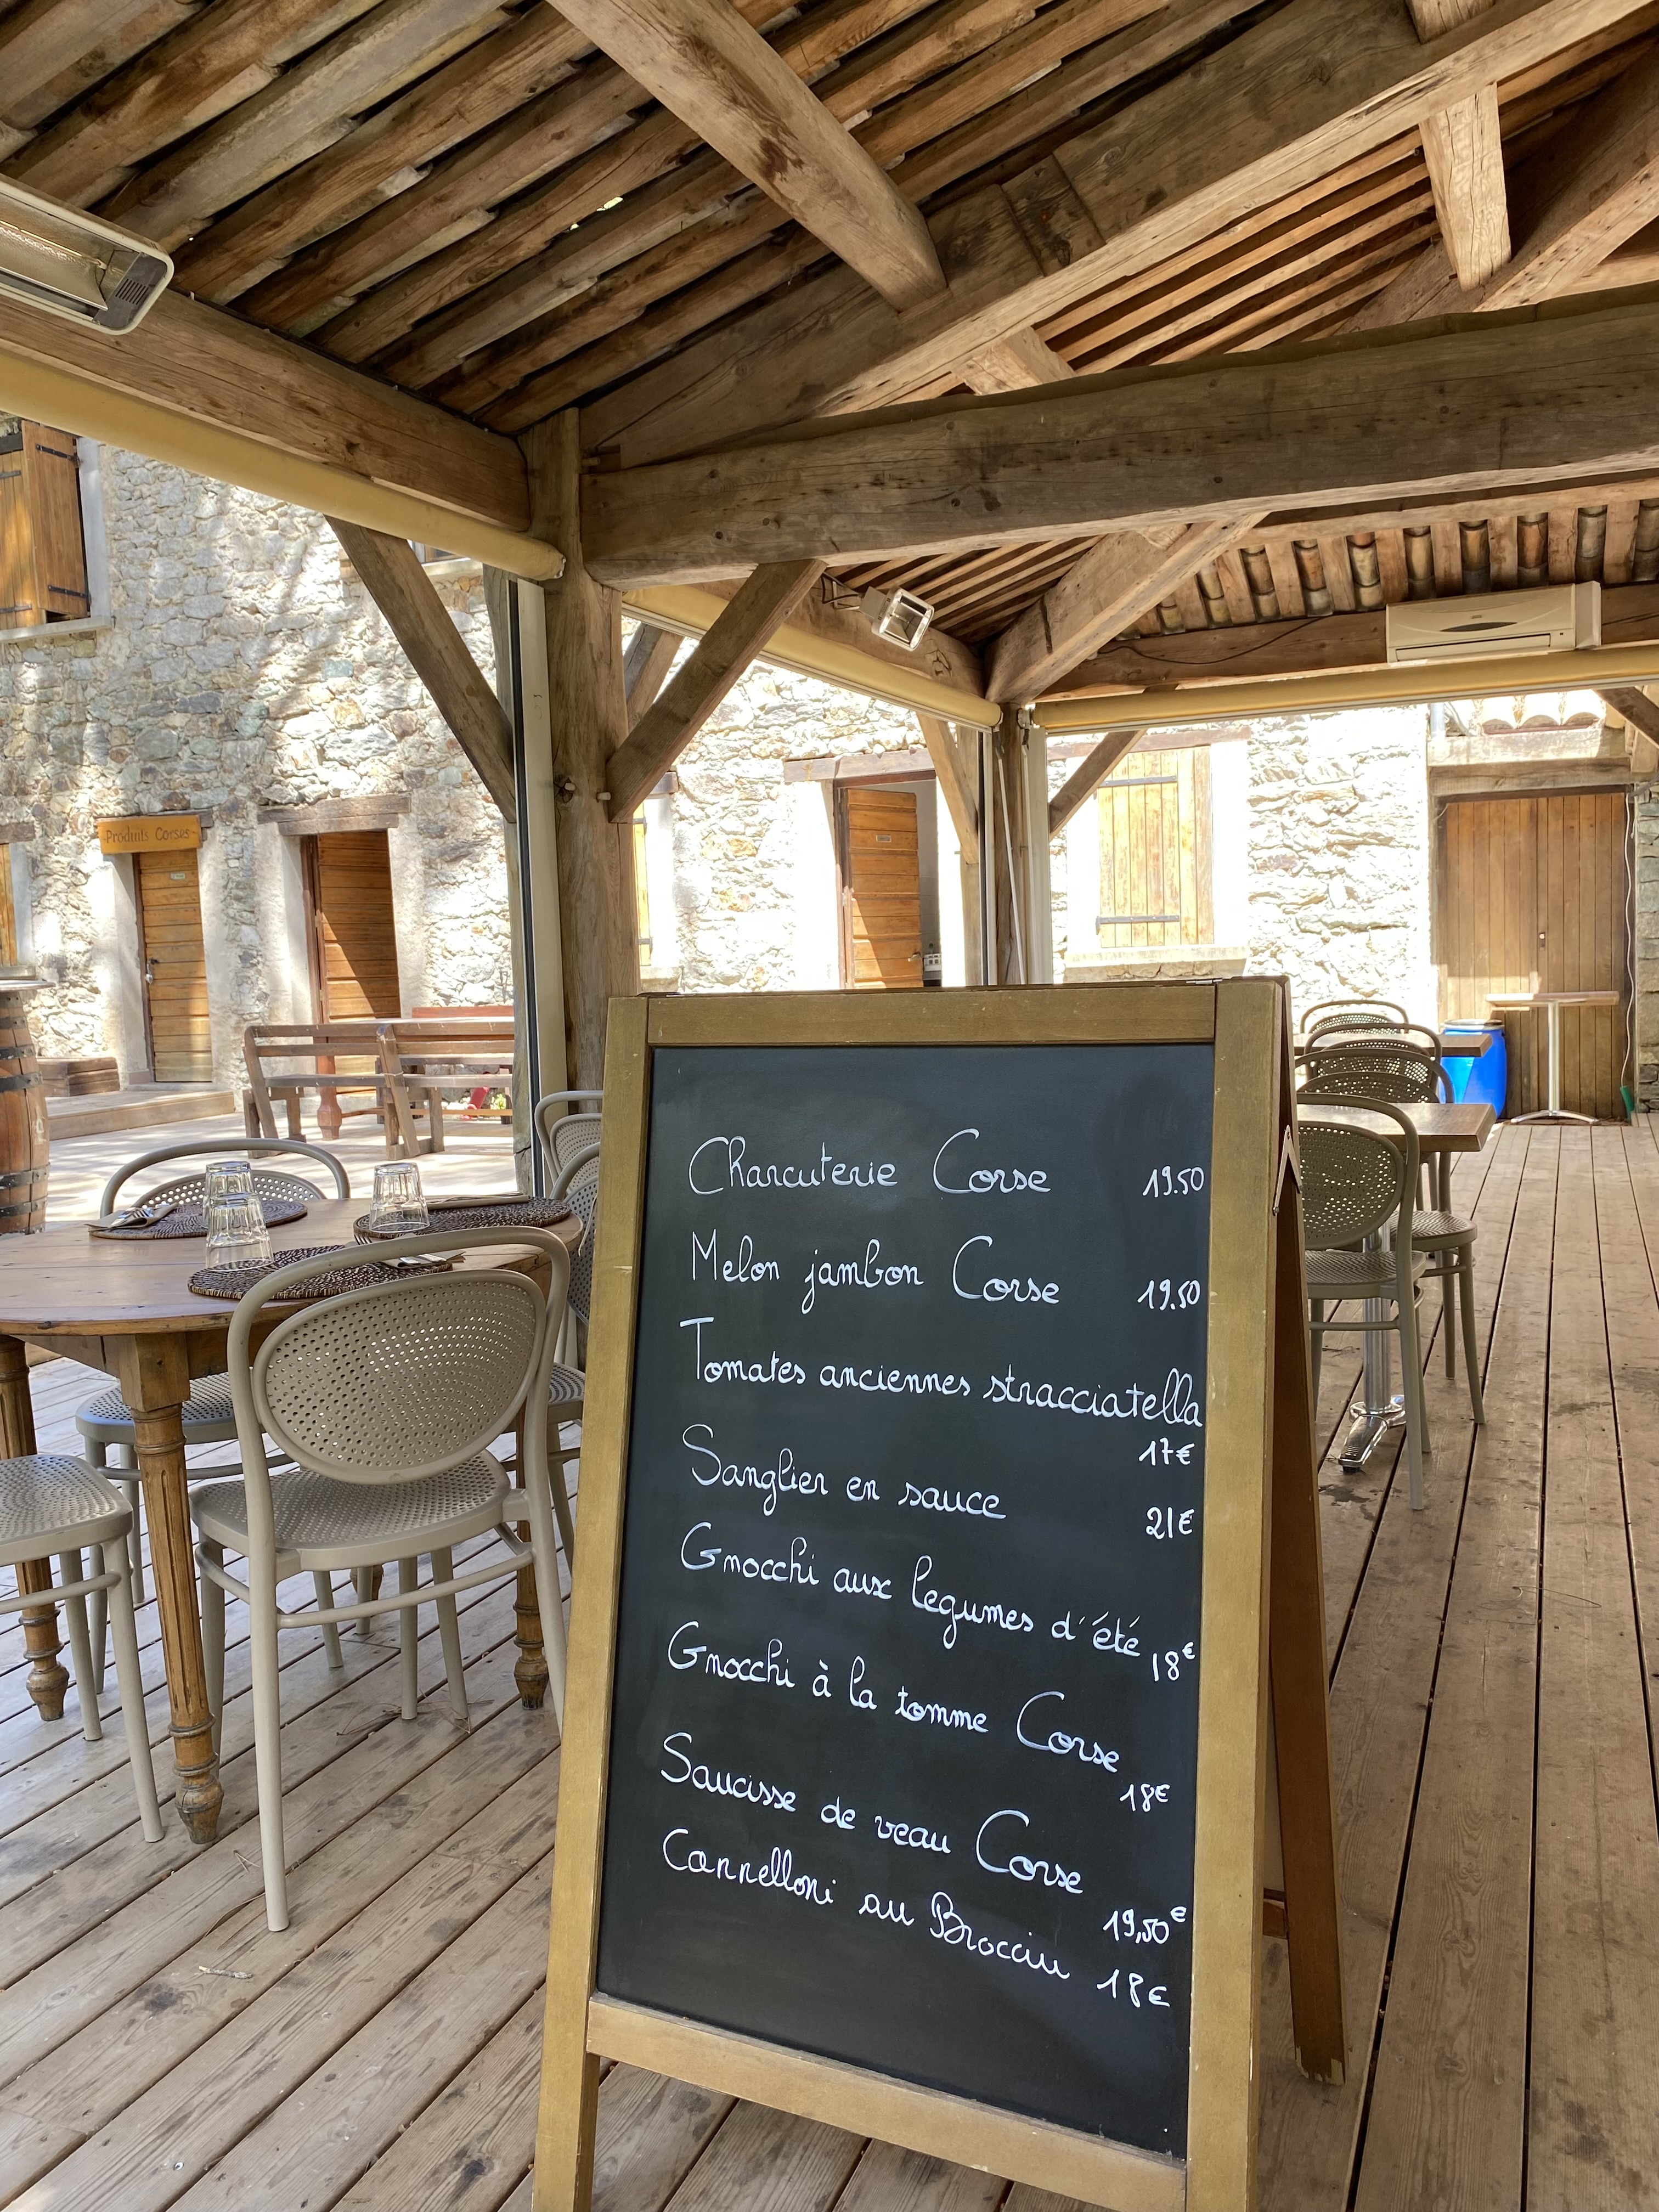 Produits Corses
Charcuterie Corse 19.50
Melon jambon Corse 19.50
Tomates anciennes stracciatella
17€
Sanglier en sauce 21€
Gnocchi aux legumes d'été 18€
Gnocchi à la tomme Corse
18€
Saucisse de veau Corse
19,50€
Cannelloni au Brocciu 18€